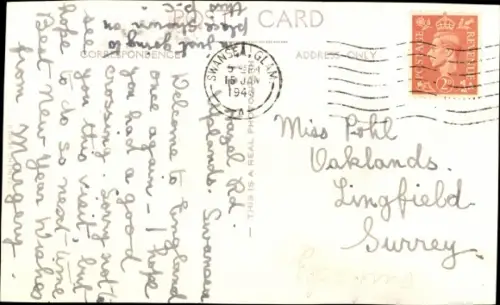 POST CARD
CORRESPONDENCE
ADDRESS ONLY
THIS IS A REAL PHOTO
SWANSEA, GLAM.
JAN
194
POSTAGE
REVENUE
Miss Pohl
Oaklands.
Lingfield.
Surrey.
Rd.
Uplands. Swansea
Welcome to England
once again – I hope
you had a good
crossing. Sorry not to
see you this visit, but
hope to do so next time
Best New Year Wishes
from Margery.
just going to
place shown on
this p.c.